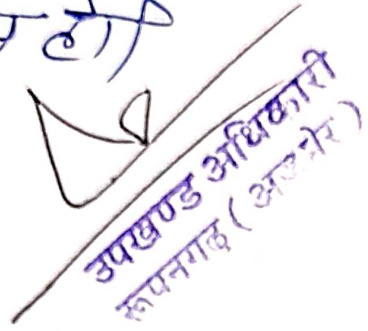 हो
उपखण्ड अधिकारी
रूपनगढ़ (अजमेर)